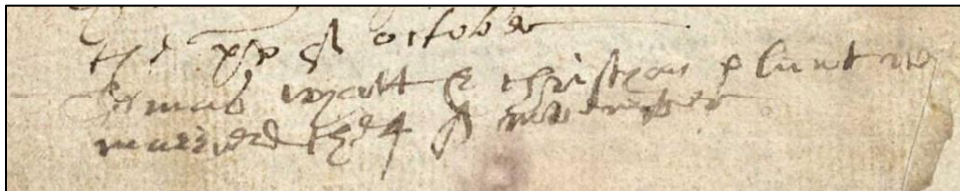 the xx of october
Tomas wyatt & christyan pluntrie
married the 4 of november